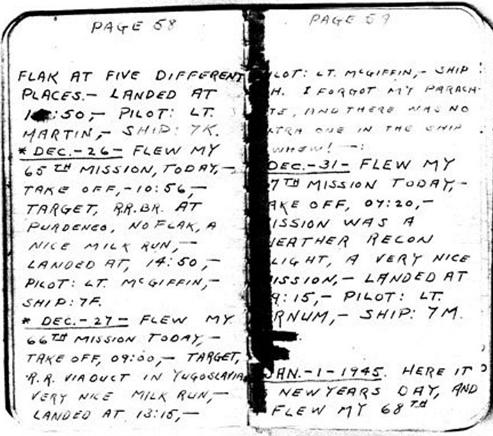 PAGE 58
FLAK AT FIVE DIFFERENT
PLACES.- LANDED AT
:50,- PILOT: LT.
MARTIN,- SHIP: 7K.
* DEC.-26- FLEW MY
65TH MISSION, TODAY,-
TAKE OFF,-10:56,-
TARGET, R.R.BR. AT
PURDENCO, NO FLAK, A
NICE MILK RUN,-
LANDED AT, 14:50,-
PILOT: LT. McGIFFIN,-
SHIP: 7F.
* DEC.-27- FLEW MY
66TH MISSION TODAY,-
TAKE OFF, 09:00,- TARGET,
R.R. VIADUCT IN YUGOSLAVIA
VERY NICE MILK RUN,-
LANDED AT 13:15,-
PAGE 59
ILOT: LT. McGIFFIN,- SHIP
H. I FORGOT MY PARACH-
TE, AND THERE WAS NO
XTRA ONE IN THE SHIP
WHEW! -
DEC.-31- FLEW MY
7TH MISSION TODAY,-
AKE OFF, 07:20,-
ISSION WAS A
EATHER RECON
LIGHT, A VERY NICE
ISSION,- LANDED AT
9:15,- PILOT: LT.
RNUM,- SHIP: 7M.
JAN.-1-1945. HERE IT
S NEW YEARS DAY, AND
FLEW MY 68TH